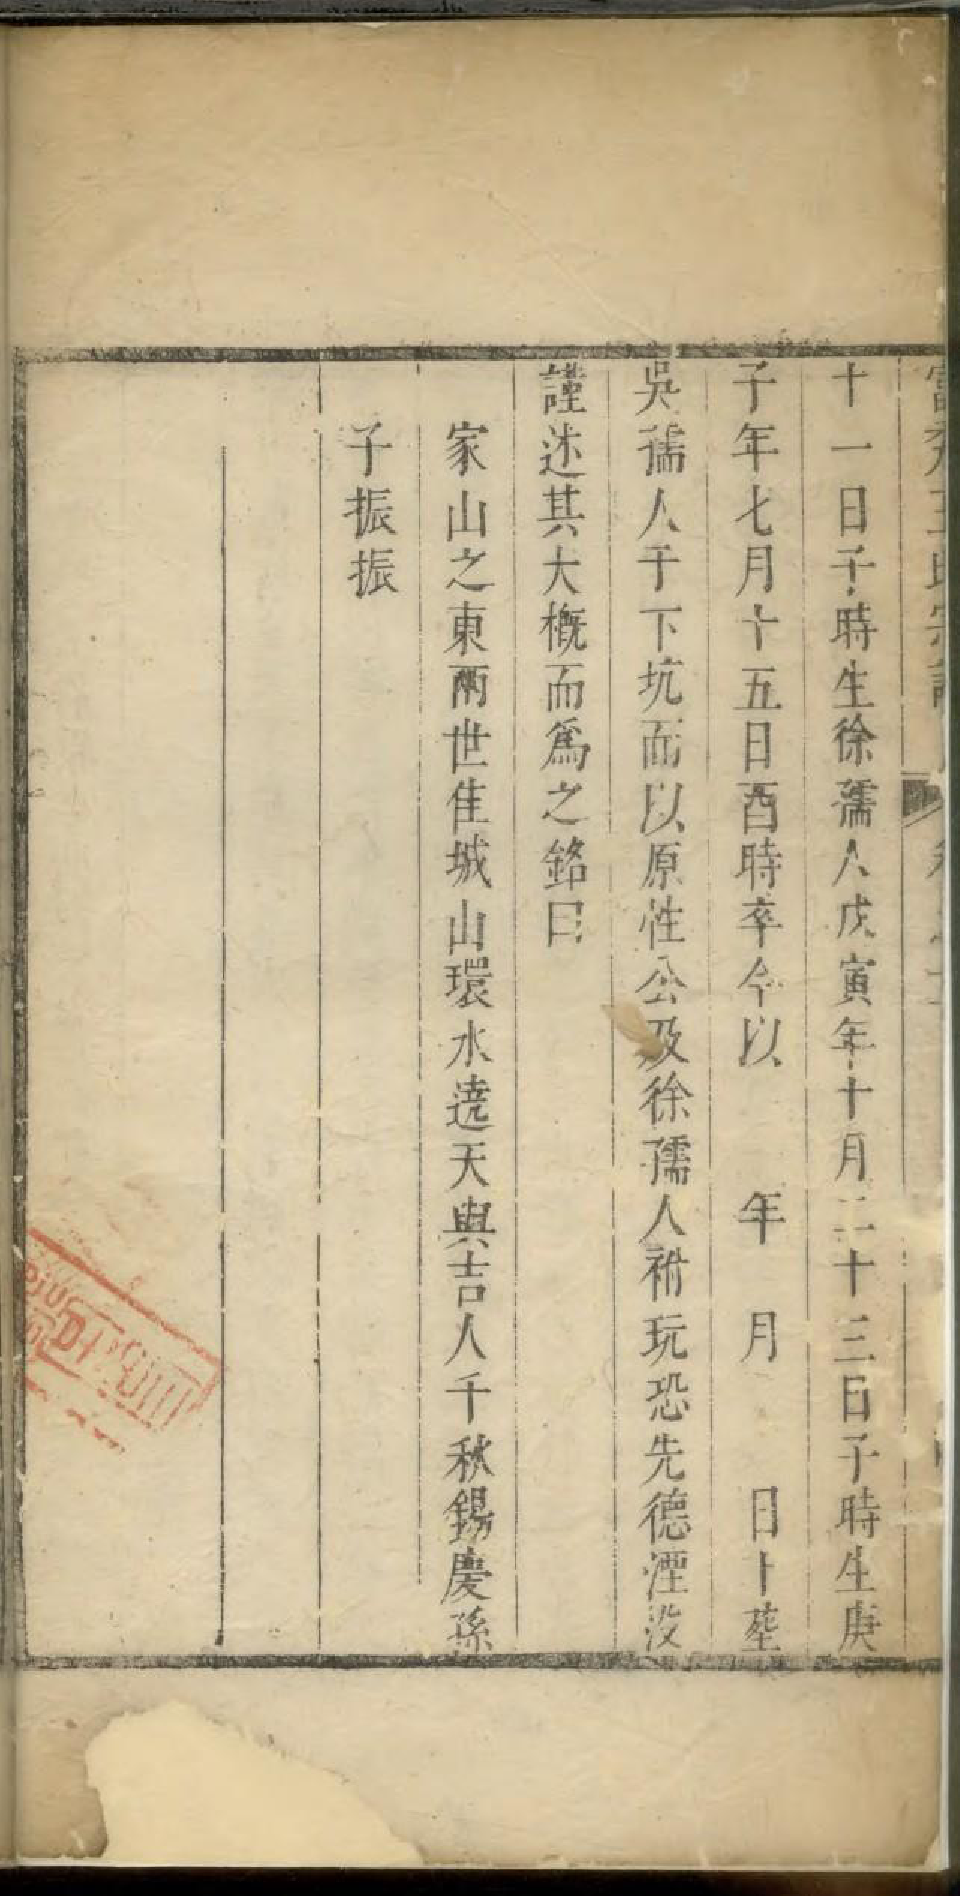 十一日子時生徐孺人戊寅年十月二十三日子時生庚
子年七月十五日酉時卒今以　年　月　日卜塟
吳孺人于下坑而以原性公及徐孺人祔玩恐先德湮没
謹述其大概而爲之銘曰
家山之東兩世佳城山環水遶天與吉人千秋錫慶孫
子振振